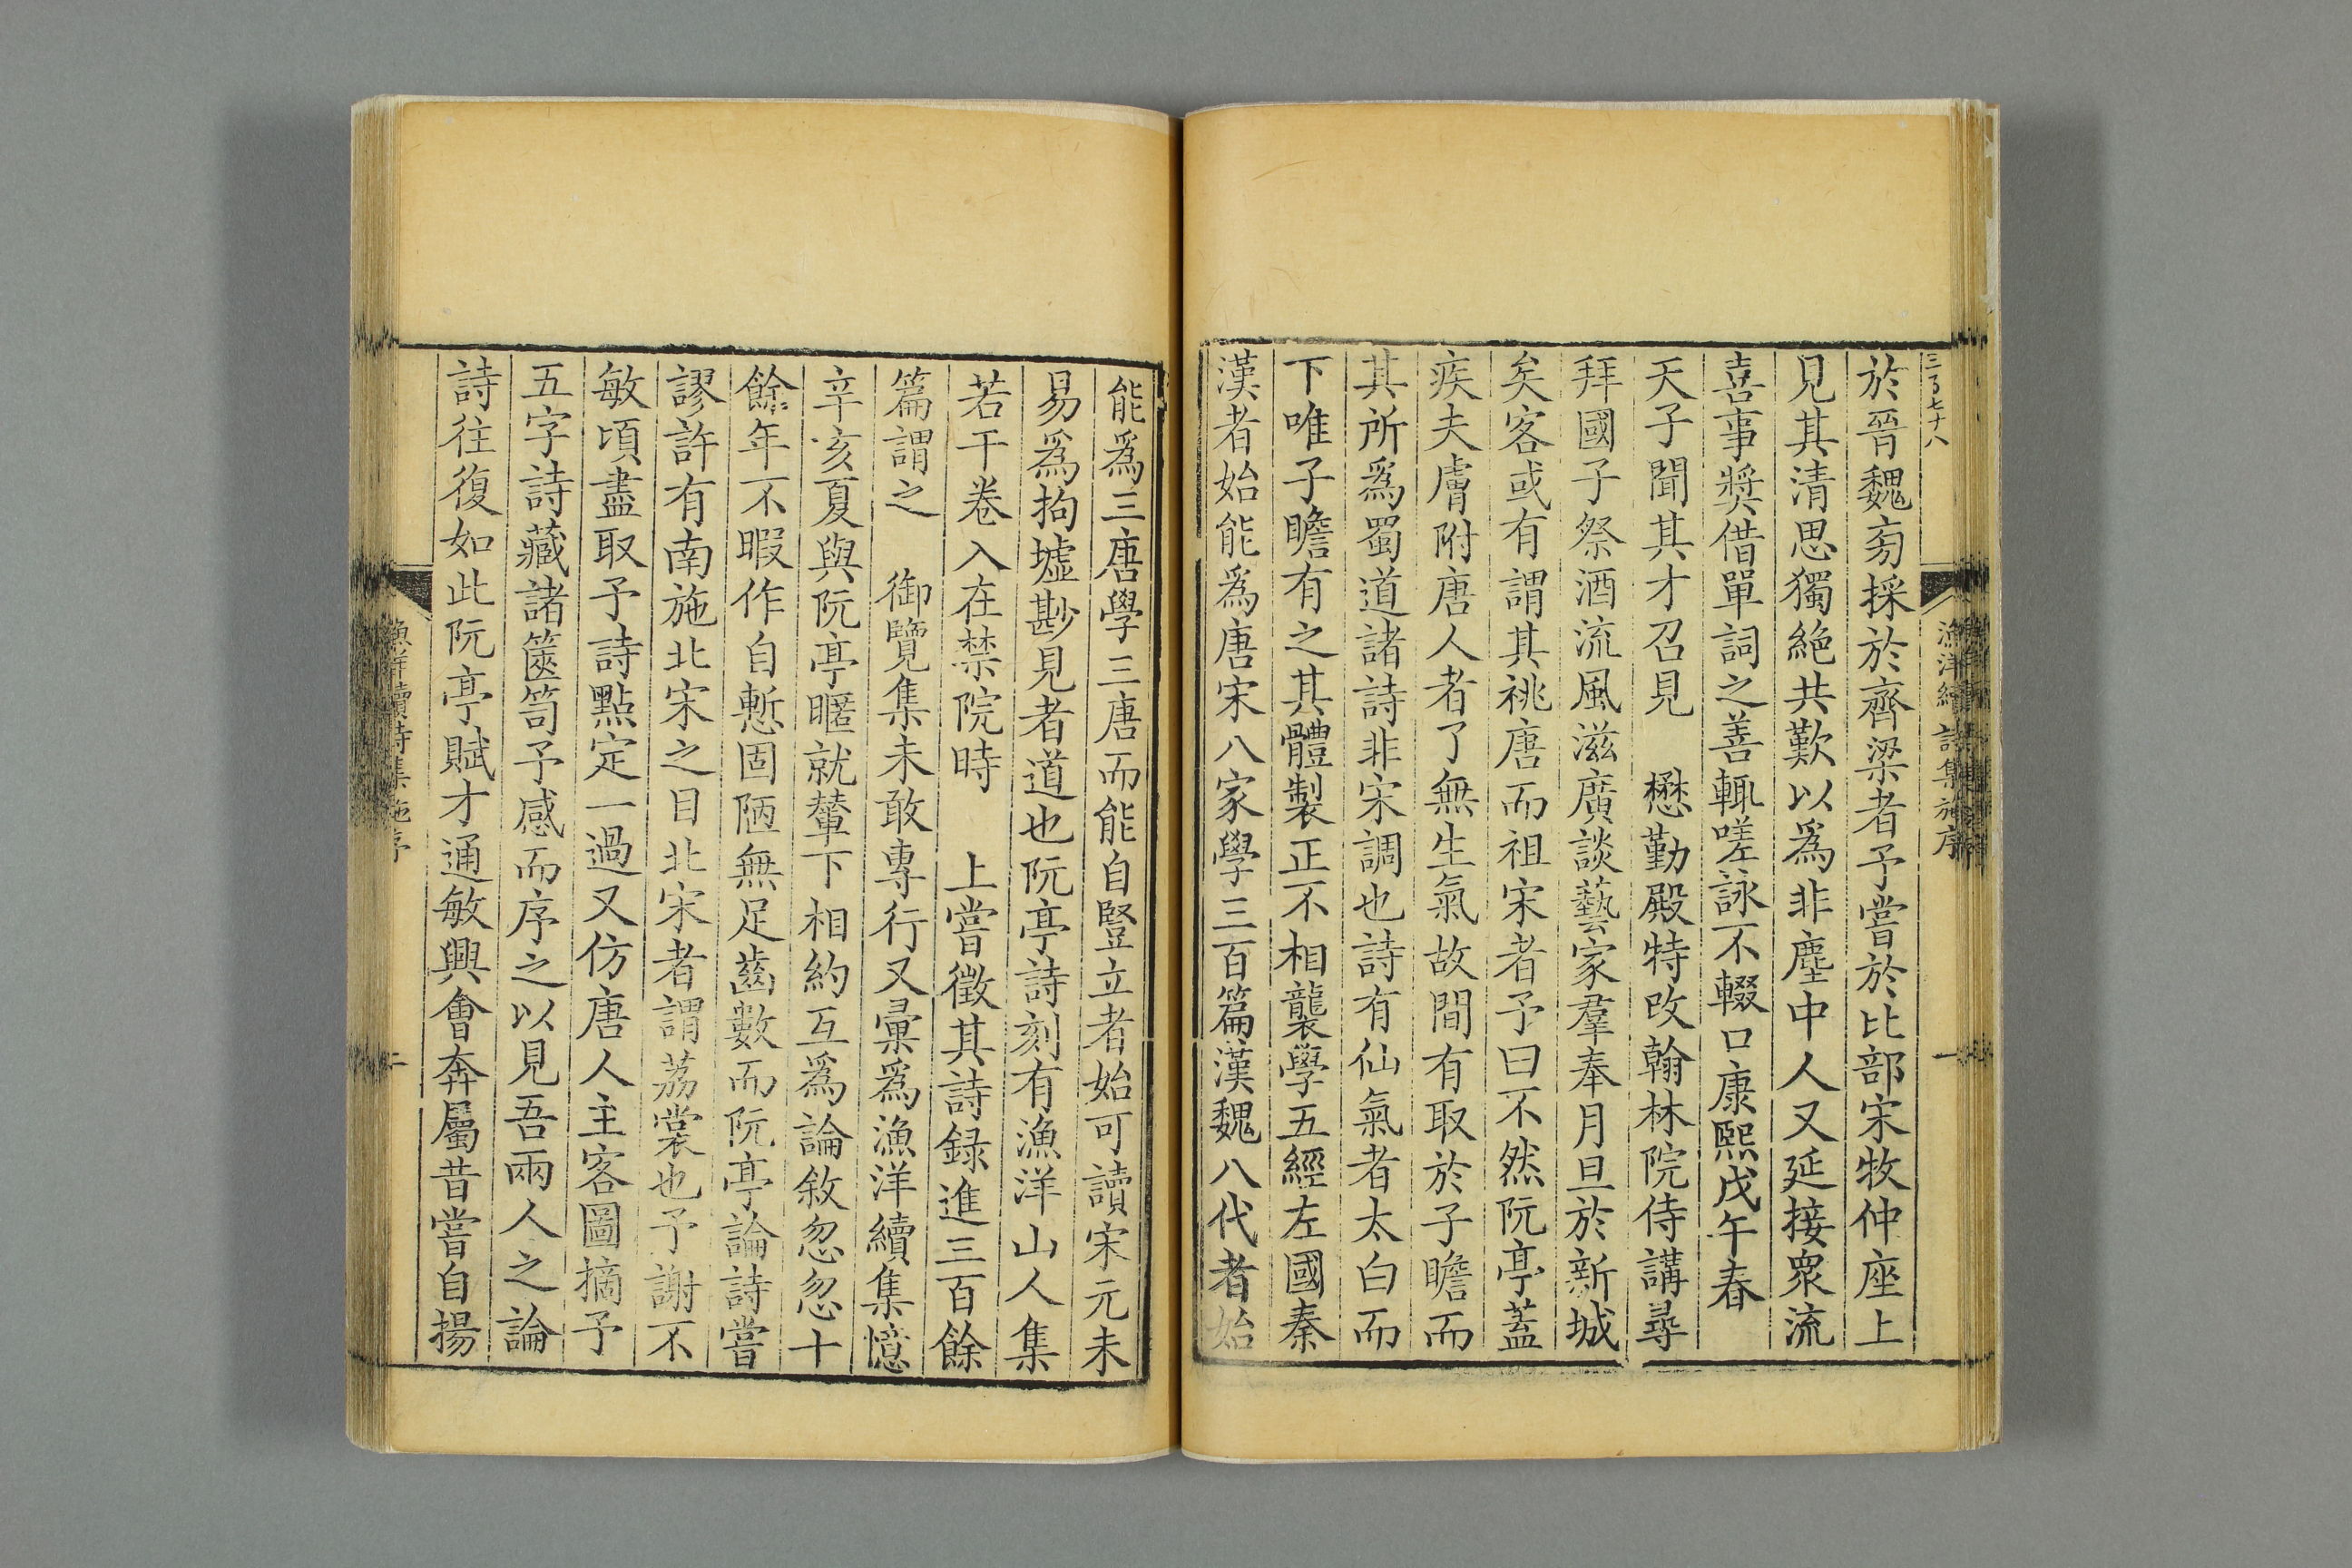 三百七十八
於晉魏㫄採於齊梁者予嘗於比部宋牧仲座上
見其清思獨絶共歎以爲非塵中人又延接衆流
喜事奬借單詞之善輒嗟詠不輟口康熙戊午春
天子聞其才召見　懋勤殿特改翰林院侍講尋
拜國子祭酒流風滋廣談藝家羣奉月旦於新城
矣客或有謂其祧唐而祖宋者予曰不然阮亭蓋
疾夫膚附唐人者了無生氣故間有取於子瞻而
其所爲蜀道諸詩非宋調也詩有仙氣者太白而
下唯子瞻有之其體製正不相襲學五經左國秦
漢者始能爲唐宋八家學三百篇漢魏八代者始
能爲三唐學三唐而能自豎立者始可讀宋元未
易爲拘墟尠見者道也阮亭詩刻有漁洋山人集
若干卷入在禁院時　上嘗徵其詩録進三百餘
篇謂之　御覽集未敢專行又彙爲漁洋續集憶
辛亥夏與阮亭暱就輦下相約互爲論敘忽忽十
餘年不暇作自慙固陋無足齒數而阮亭論詩嘗
謬許有南施北宋之目北宋者謂荔裳也予謝不
敏頃盡取予詩點定一過又仿唐人主客圖摘予
五字詩藏諸篋笥予感而序之以見吾兩人之論
詩往復如此阮亭賦才通敏興會奔屬昔嘗自揚
漁洋續詩集施序